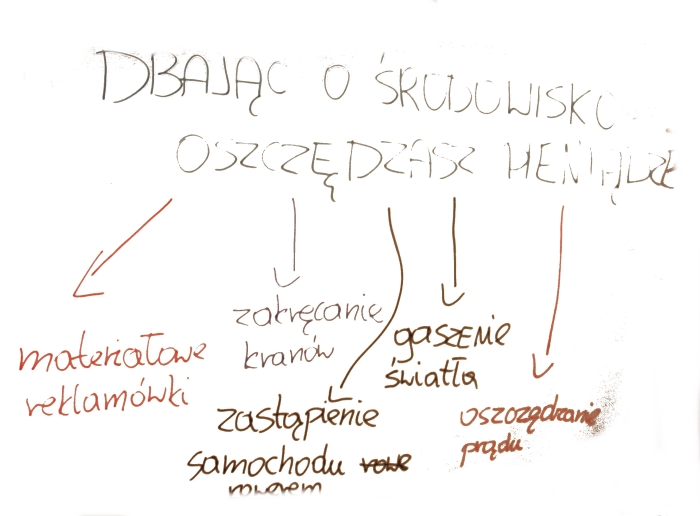 DBAJĄC O ŚRODOWISKO
OSZCZĘDZASZ PIENIĄDZE
materiałowe
reklamówki
zakręcanie
kranów
zastąpienie
samochodu rowe
rowerem
gaszenie
światła
oszczędzanie
prądu